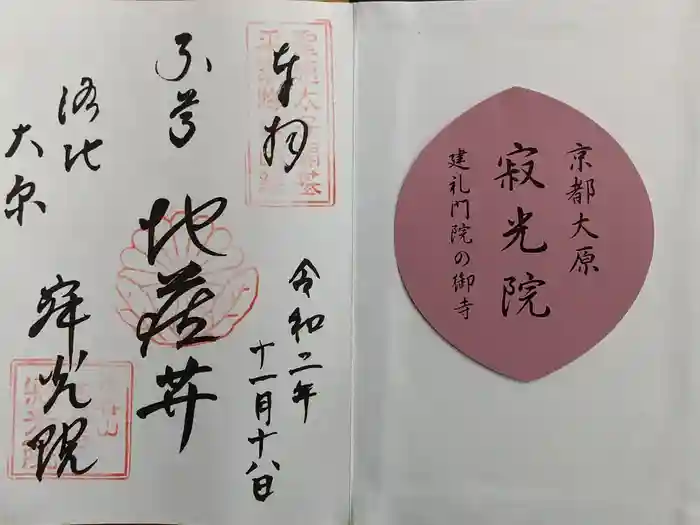 京都大原
寂光院
建礼門院の御寺
奉拝
令和二年
十一月十八日
本尊
地蔵井
洛北
大原
寂光院